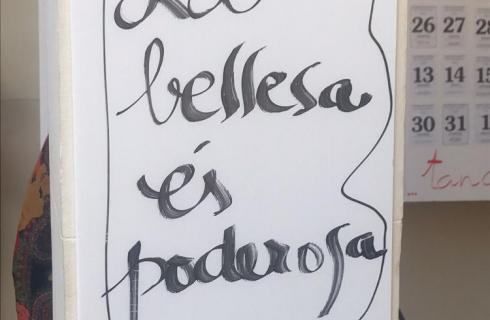 La
bellesa
és
poderosa
26 27 28
13 14 15
30 31 1